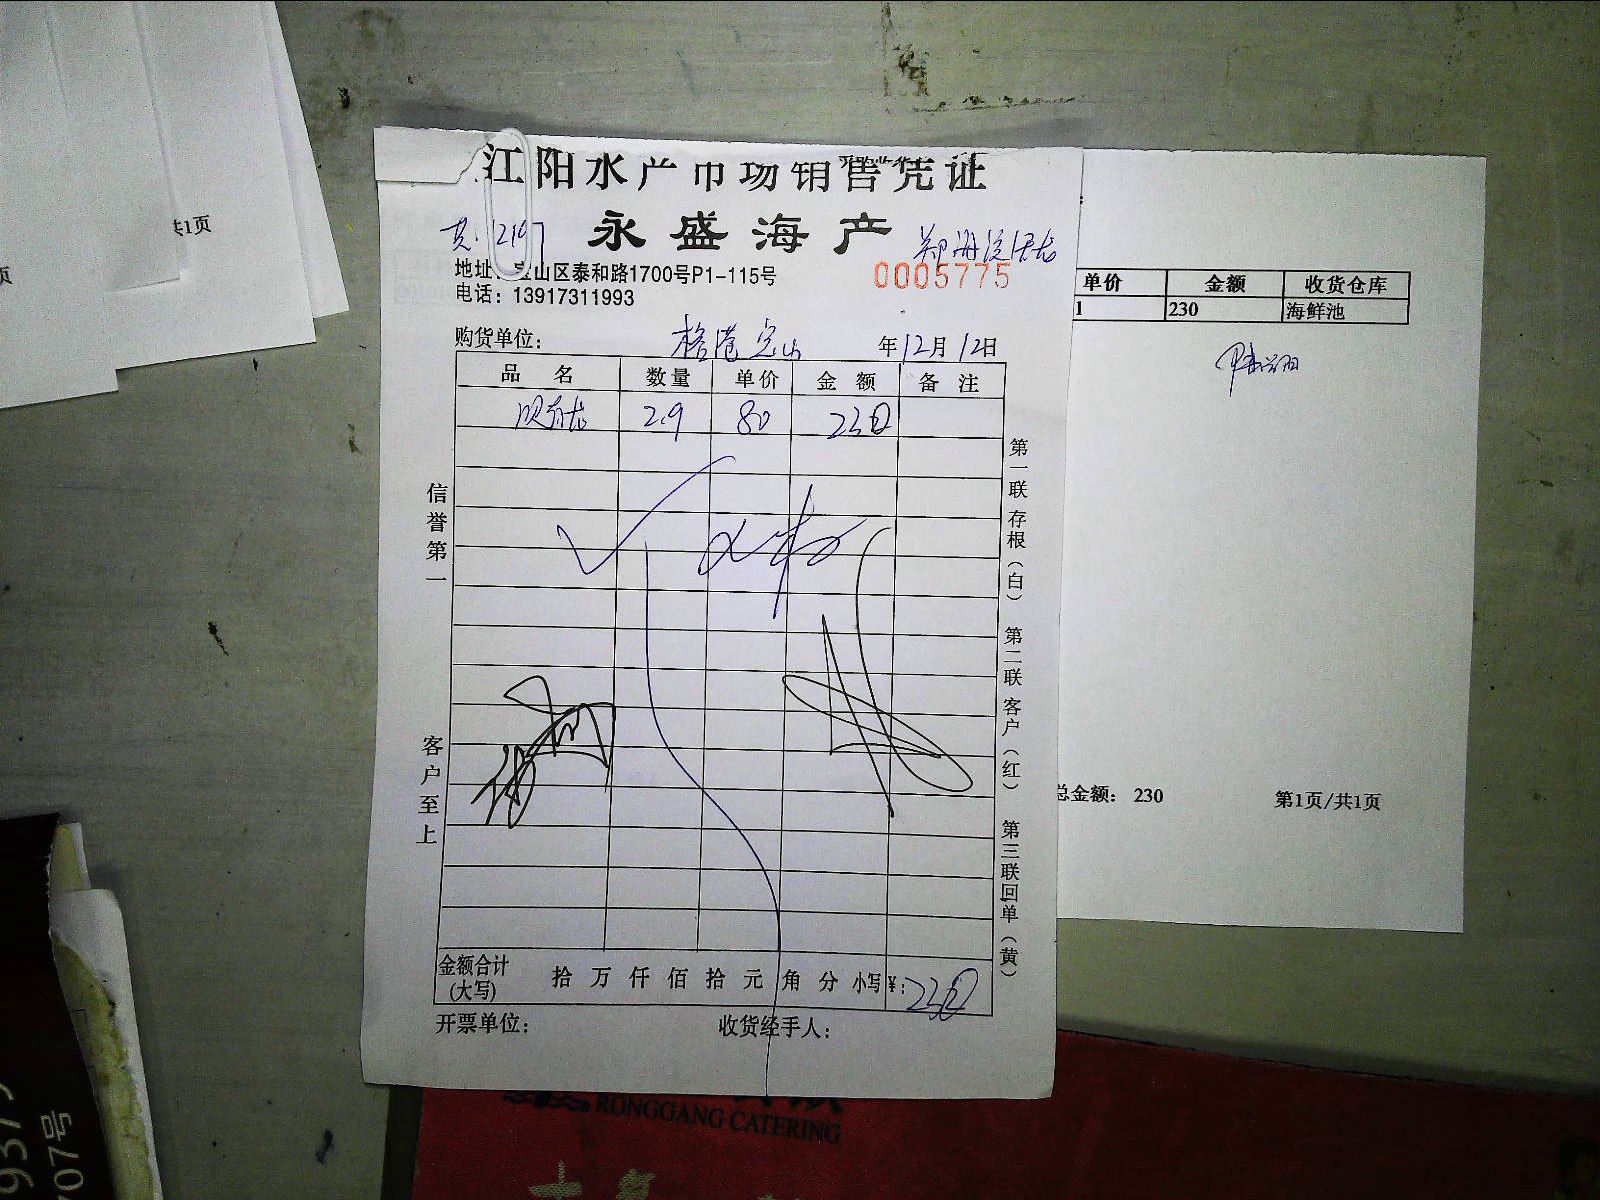 江阳水产市场销售凭证
永盛海产
共:12197
0005775
地址:宝山区泰和路1700号P1-115号
电话:13917311993
购货单位: 年12月12日
品名 数量 单价 金额 备注
2.9 80 230
信誉第一
客户至上
第一联存根(白) 第二联客户(红) 第三联回单(黄)
金额合计(大写) 拾 万 仟 佰 拾 元 角 分 小写¥:230
开票单位: 收货经手人:
单价 金额 收货仓库
1 230 海鲜池
总金额: 230 第1页/共1页
共1页
页
RONGGANG CATERING
9375
707号